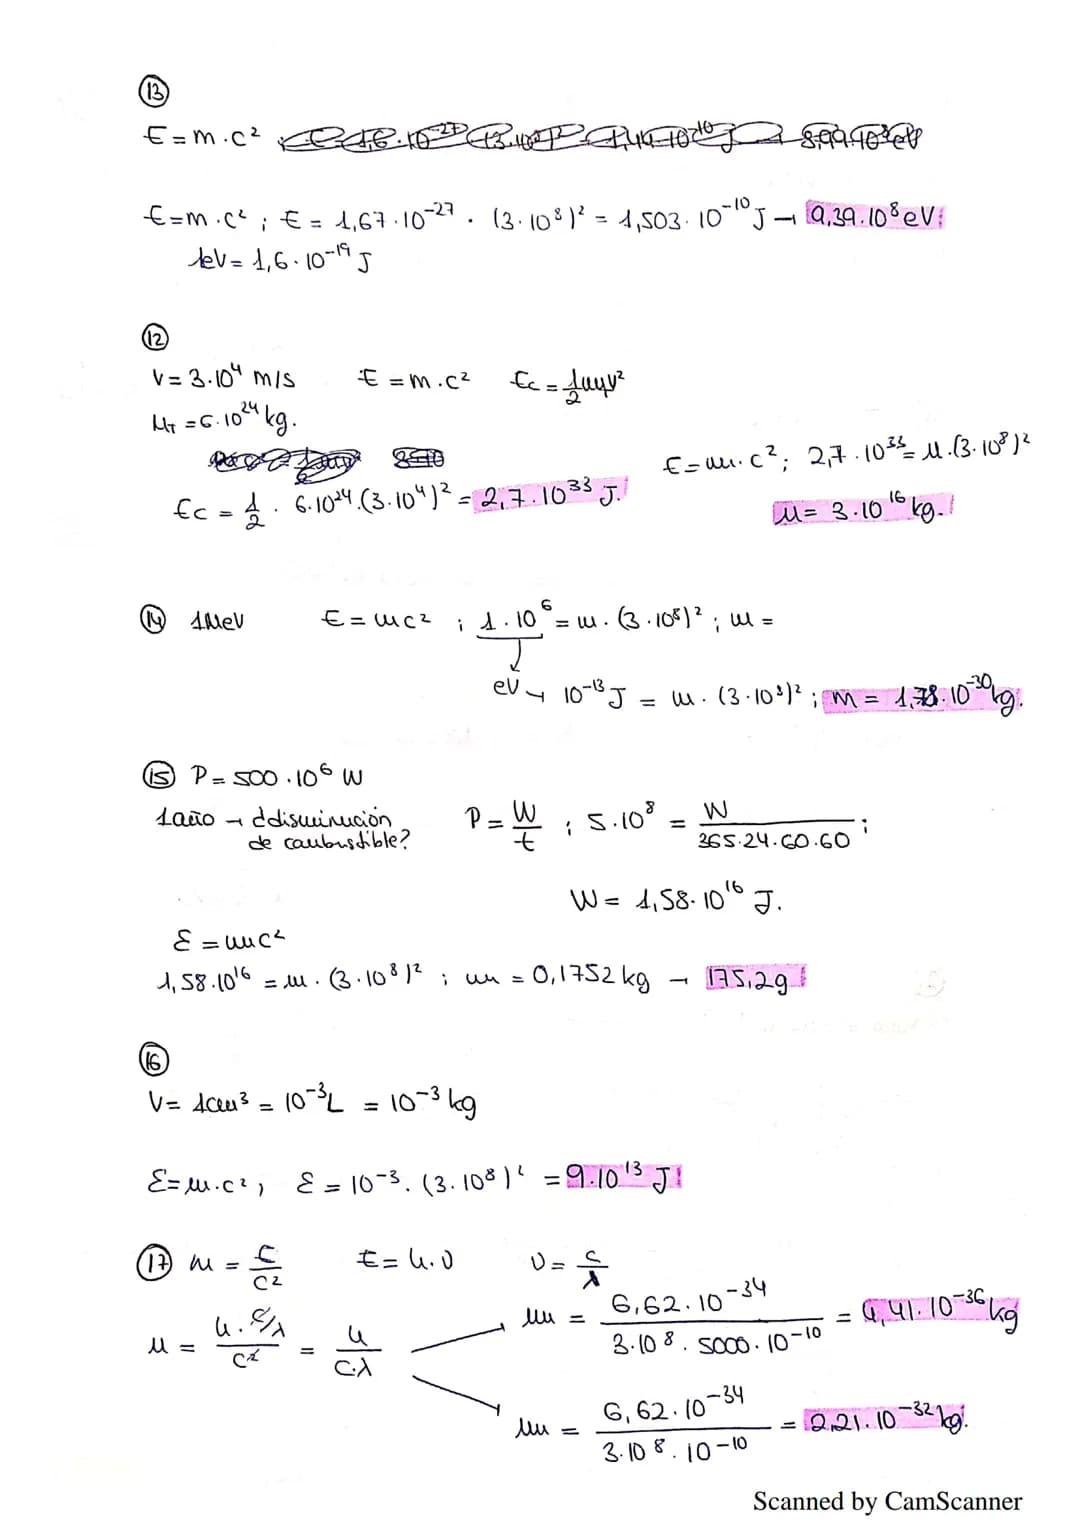 13
E=m.c²
E=m.c² ; E = 1,67.10⁻²⁷ . (3.10⁸)² = 1,503.10⁻¹⁰ J → 9,39.10⁸ eV
1eV = 1,6.10⁻¹⁹ J
12
V = 3.10⁴ m/s E = m.c² Ec = 1/2 m v²
M_T = 6.10²⁴ kg.
Ec = 1/2 . 6.10²⁴.(3.10⁴)² = 2,7.10³³ J.
E=m.c²; 2,7.10³³ = M.(3.10⁸)²
M = 3.10¹⁶ kg.
14 1MeV E = mc² ; 1.10⁶ = m.(3.10⁸)² ; m =
eV → 10⁻¹³ J = m.(3.10⁸)² ; m = 1,78.10⁻³⁰ kg.
15 P = 500.10⁶ W
1año → ¿disminución
de combustible?
P = W/t ; 5.10⁸ = W/365.24.60.60 ;
W = 1,58.10¹⁶ J.
E = mc²
1,58.10¹⁶ = m.(3.10⁸)² ; m = 0,1752 kg → 175,2g
16
V = 1cm³ = 10⁻³L = 10⁻³ kg
E=m.c² ; E = 10⁻³.(3.10⁸)² = 9.10¹³ J
17 m = E/c² E = h.υ υ = c/λ
M = h.c/λ/c² = h/c.λ
m = 6,62.10⁻³⁴/3.10⁸.5000.10⁻¹⁰ = 4,41.10⁻³⁶ kg
m = 6,62.10⁻³⁴/3.10⁸.10⁻¹⁰ = 2,21.10⁻³² kg.
Scanned by CamScanner